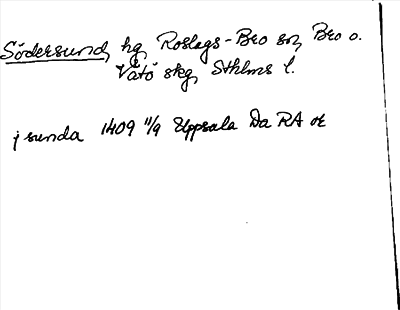 Södersund, hg, Roslags-Bro sn, Bro o.
Vätö skg, Sthlms l.
j sunda 1409 11/9 Uppsala Da RA or